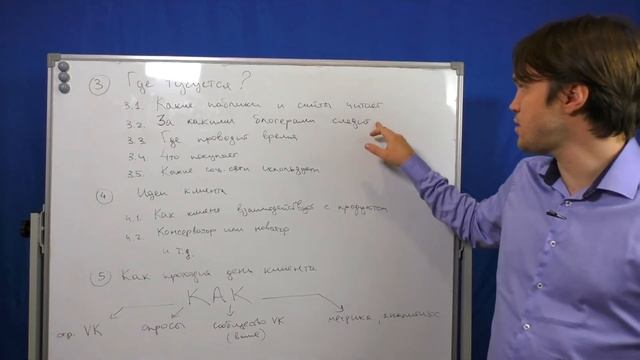 3 Где тусуется?
3.1. Какие паблики и сайты читает
3.2. За какими блогерами следит
3.3 Где проводит время
3.4 Что покупает
3.5. Какие соц. сети использует
4 Идеи клиента
4.1. Как клиент взаимодействует с продуктом
4.2. Консерватор или новатор
и т.д.
5 Как проходит день клиента
КАК
стр. VK опросы сообщество VK метрика, аналитикс